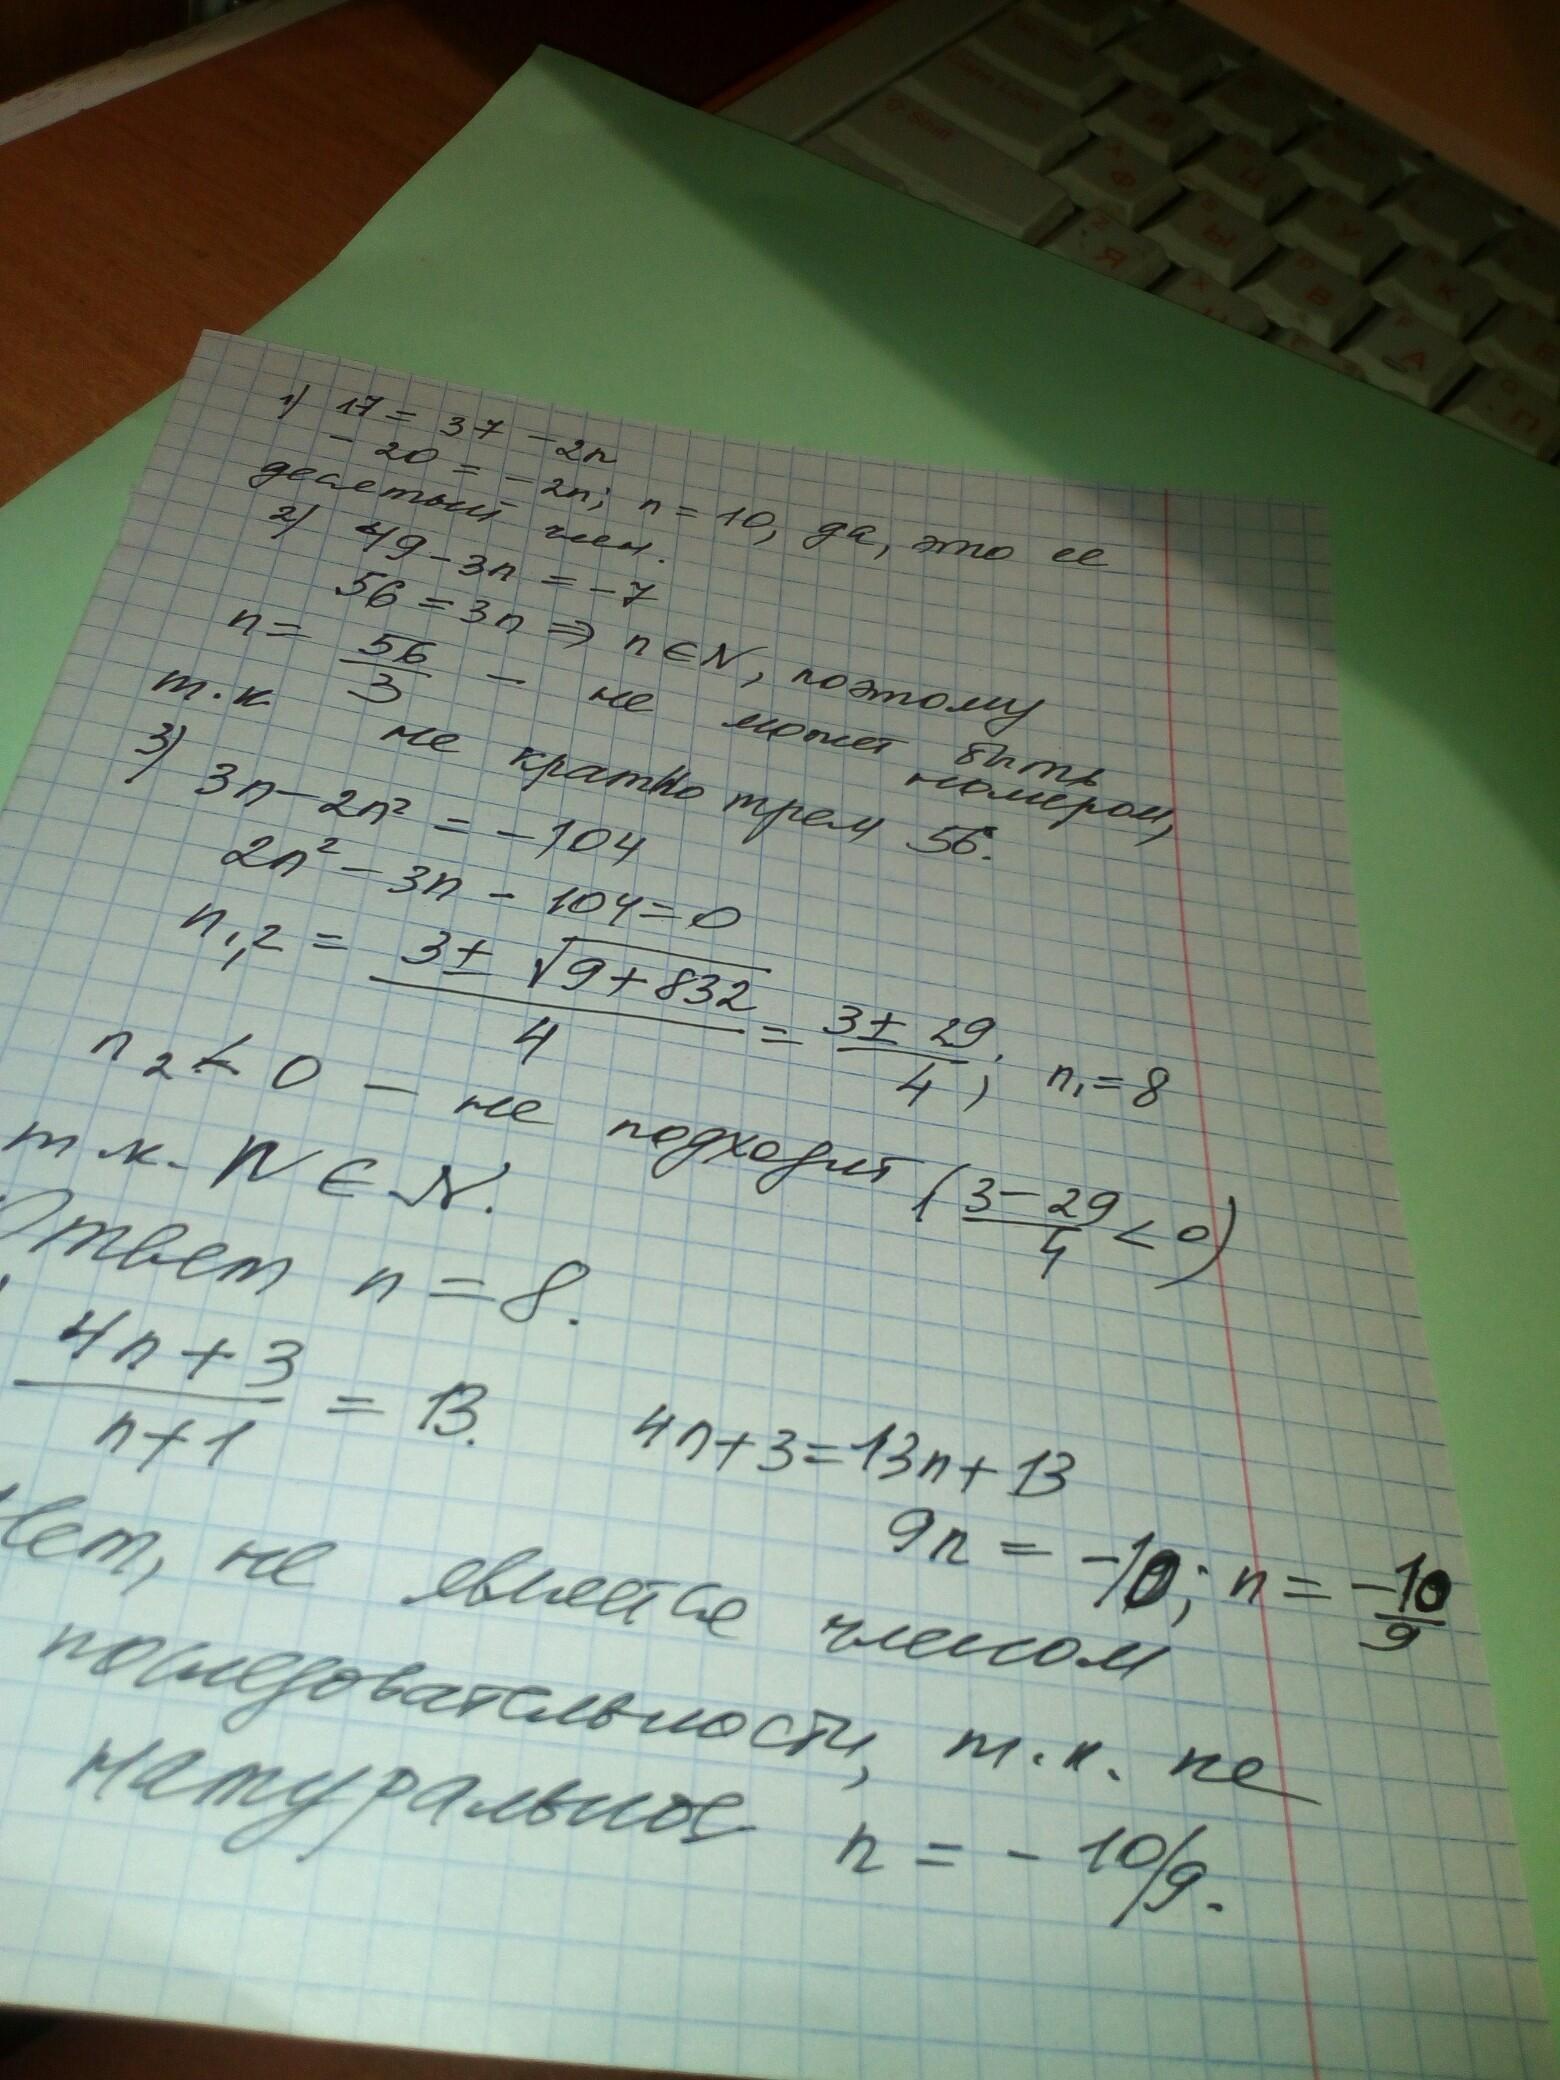 1) 17 = 37 - 2n
- 20 = - 2n; n = 10, да, это ее
десятый член.
2) 49 - 3n = -7
56 = 3n ⇒ n ∈ N, поэтому
n = 56/3 - не может быть номером,
т.к не кратно трем 56.
3) 3n - 2n² = -104
2n² - 3n - 104 = 0
n₁,₂ = (3 ± √(9 + 832))/4 = (3 ± 29)/4; n₁ = 8
n₂ < 0 - не подходит ((3 - 29)/4 < 0)
т.к. n ∈ N.
Ответ n = 8.
(4n + 3)/(n + 1) = 13. 4n + 3 = 13n + 13
9n = -10; n = -10/9
Нет, не является членом
последовательности, т.к. не
натуральное n = - 10/9.
Shift
Я
Ф
Ц
Ы
У
В
К
А
П